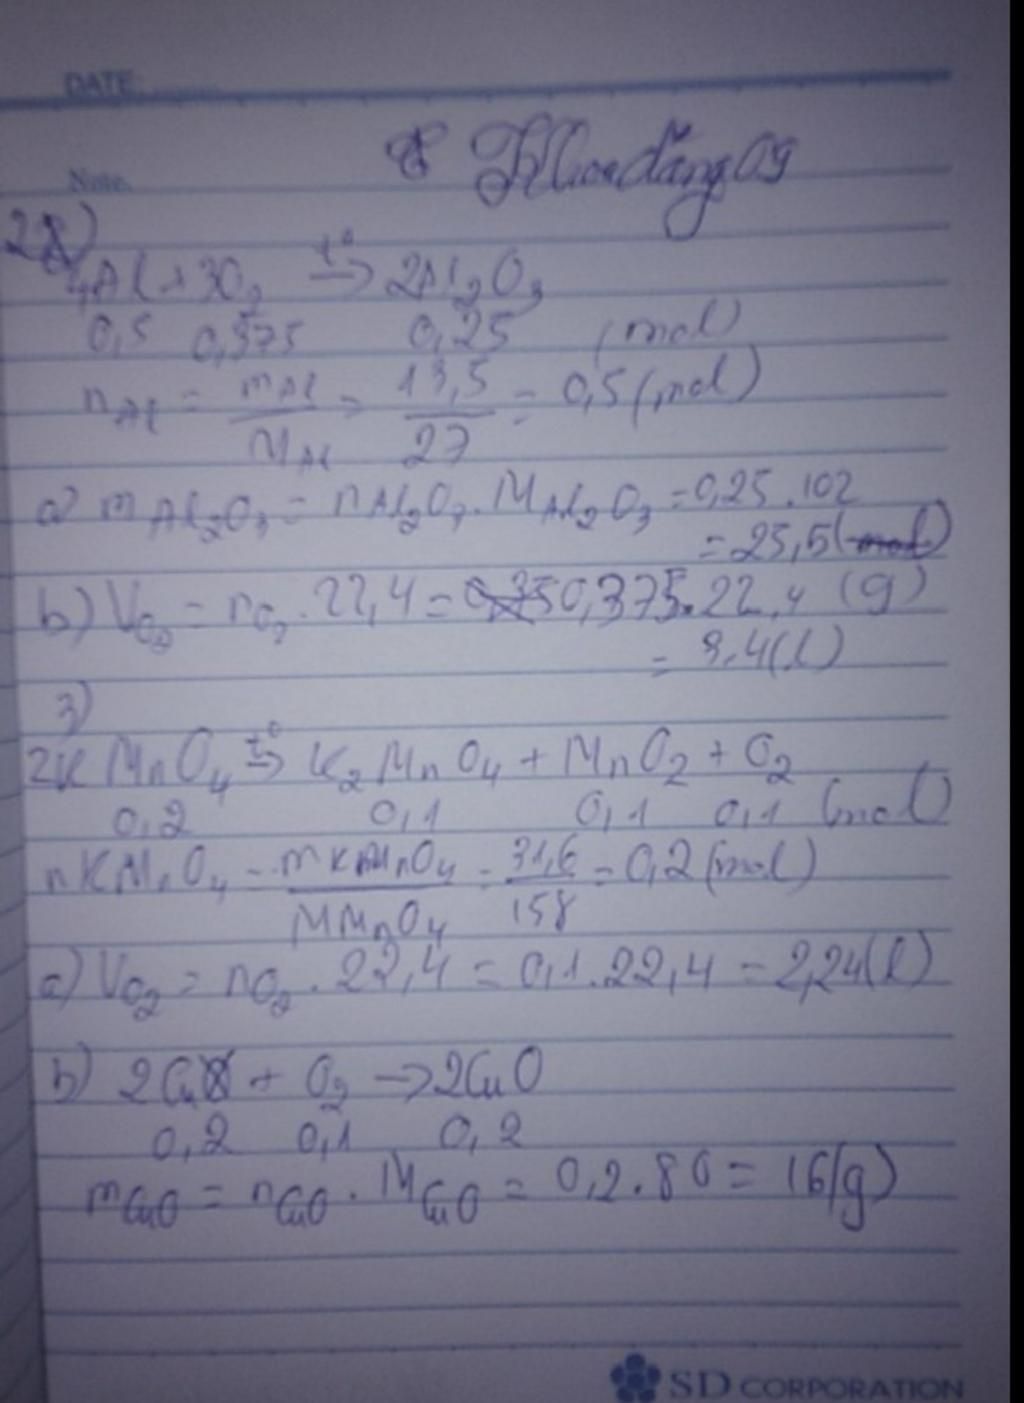 DATE
Khoadăng09
Note
2)
4Al + 3O₂ t° → 2Al₂O₃
0,5 0,375 0,25 (mol)
nAl = mAl / MAl = 13,5 / 27 = 0,5 (mol)
a) mAl₂O₃ = nAl₂O₃ . MAl₂O₃ = 0,25 . 102
= 25,5 (g)
b) VO₂ = nO₂ . 22,4 = 0,375 . 22,4
= 8,4 (l)
3)
2KMnO₄ t° → K₂MnO₄ + MnO₂ + O₂
0,2 0,1 0,1 0,1 (mol)
nKMnO₄ = mKMnO₄ / MMnO₄ = 31,6 / 158 = 0,2 (mol)
a) VO₂ = nO₂ . 22,4 = 0,1 . 22,4 = 2,24 (l)
b) 2Cu + O₂ → 2CuO
0,2 0,1 0,2
mCuO = nCuO . MCuO = 0,2 . 80 = 16 (g)
SD CORPORATION